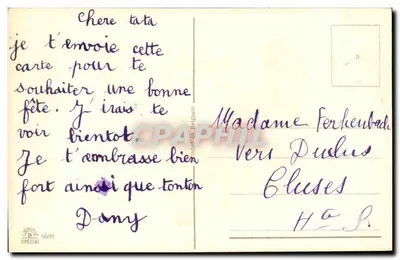 Chere tata
je t'envoie cette
carte pour te
souhaiter une bonne
fête. J'irais te
voir bientot.
Je t'embrasse bien
fort ainsi que tonton
Dany
Madame Ferkenbach
Vers
Cluses
Hte S.
SPECIAL
CPAPHIL